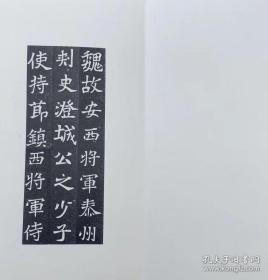 魏故安西將軍泰州
刾史澄城公之少子
使持節鎮西將軍侍
孔夫子旧书网